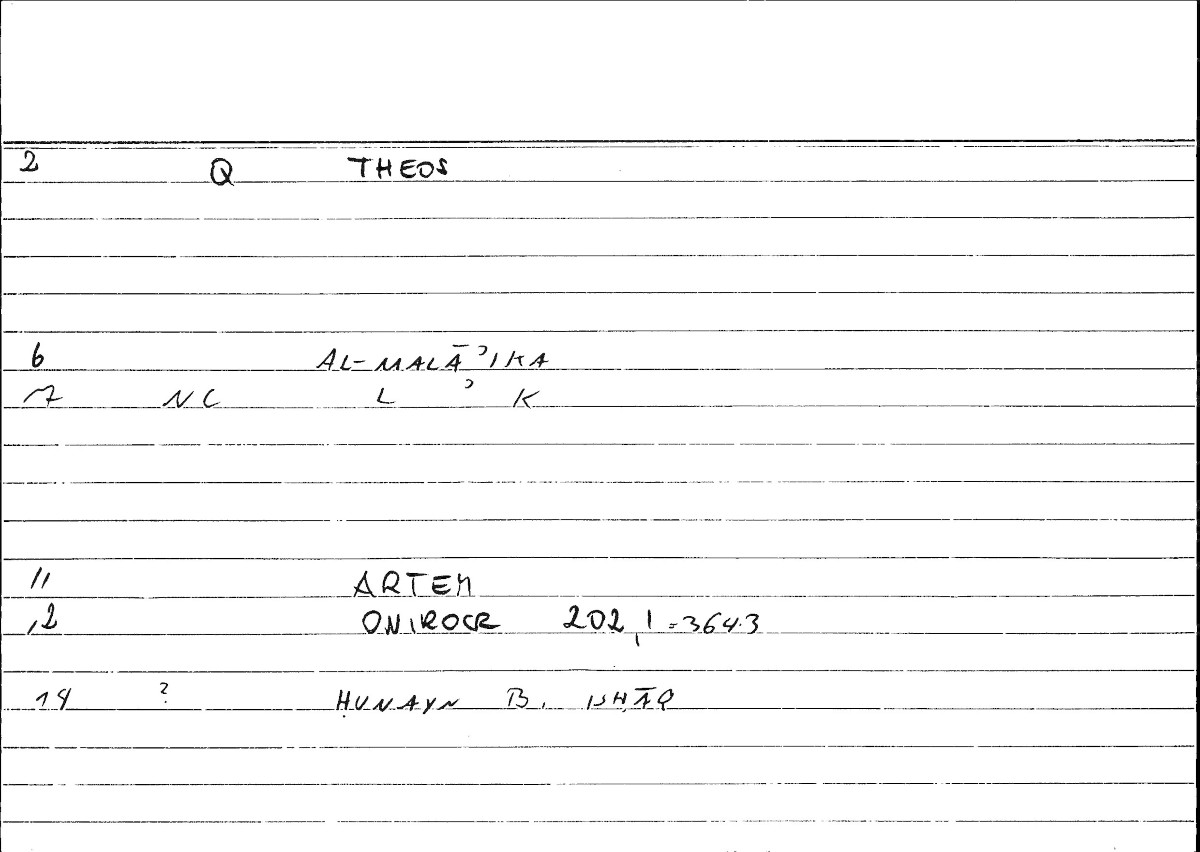 2 Q THEOS
6 AL-MALĀʾIKA
7 NC L ʾ K
11 ARTEM
12 ONIROCR 202,1=364.3
14 ? ḤUNAYN B. ISḤĀQ